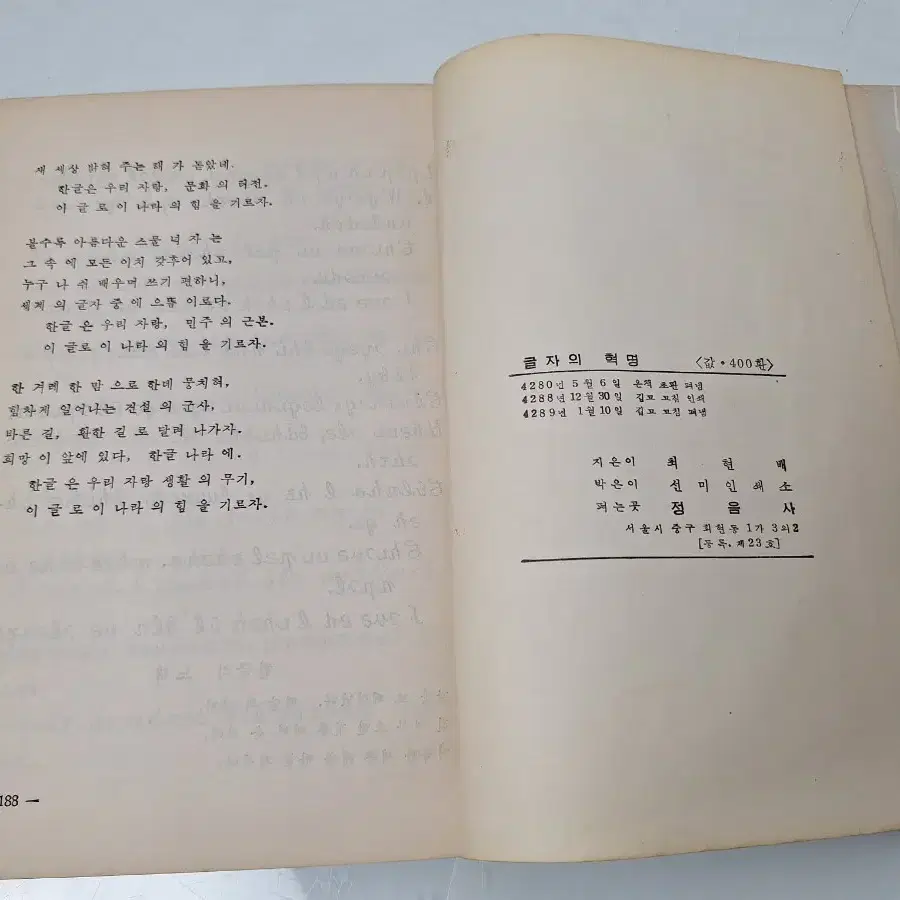 새 세상 밝혀 주는 해 가 돋았네.
한글은 우리 자랑, 문화 의 터전.
이 글 로 이 나라 의 힘 을 기르자.
볼수록 아름다운 스물 넉 자 는
그 속 에 모든 이치 갖추어 있고,
누구 나 쉬 배우며 쓰기 편하니,
세계 의 글자 중 에 으뜸 이로다.
한글 은 우리 자랑, 민주 의 근본.
이 글로 이 나라 의 힘 을 기르자.
한 겨레 한 맘 으로 한데 뭉치혀,
힘차게 일어나는 건설 의 군사,
바른 길, 환한 길 로 달려 나가자.
희망 이 앞에 있다, 한글 나라 에.
한글 은 우리 자랑 생활 의 무기,
이 글 로 이 나라 의 힘 을 기르자.
188 —
글자의 혁명 〈값·400환〉
4280년 5월 6일 온책 조판 펴냄
4288년 12월 30일 깁고 고침 인쇄
4289년 1월 10일 깁고 고침 펴냄
지은이 최현배
박은이 선미인쇄소
펴는곳 정음사
서울시 중구 회현동 1가 3의2
[등록.제23호]